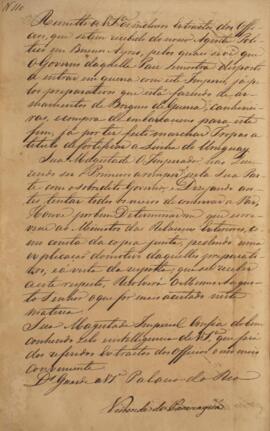 Nº 110
Remetto a V.Exª os inclusos extractos dos Offi
cios, que se tem recebido do nosso Agente Poli
tico em Buenos Ayres, pelos quaes se vê que
o Governo daquelle Paiz se mostra disposto
de entrar em guerra com este Imperio, já pe
los preparativos que está fazendo de ar
mamentos de Brigues de Guerra, canhonei
ras, e compra de embarcaçoens para este
fim, já por ter feito marchar Tropas a
titulo de fortificar a Linha do Uruguay.
Sua Magestade O Imperador não
sendo ser o Primeiro a romper pela Sua Par
te com o sobredito Governo, e Desejando an
tes tentar todos os meios de conservar a Paz,
Houve por bem Determinar-me que escre
vesse ao Ministro das Relaçoens Exteriores, co
mo consta da copia junta, pedindo uma
explicação do motivo daquelles preparati
vos, e a vista da resposta, que se receber
a este respeito, Resolverá O Mesmo Augus
to Senhor o que for mais acertado nesta
materia.
Sua Magestade Imperial Confia do bem
conhecido zelo e intelligencia de V.Exª que fará
dos referidos extractos dos Officios o uso mais
conveniente.
Ds. Guarde a V.Exª Palacio do Rio
Visconde de Paranaguá